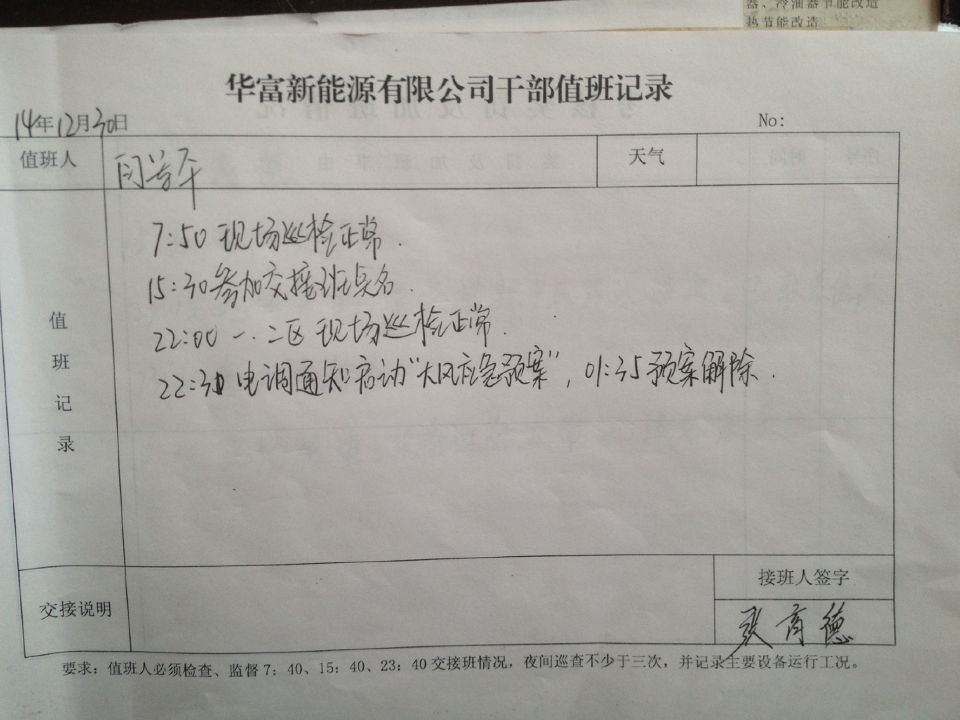 器、冷油器节能改造
热节能改造
华富新能源有限公司干部值班记录
14年12月30日
No:
值班人
天气
7:50 现场巡检正常.
15:30参加交接班点名.
22:00 一.二区现场巡检正常.
22:30 电调通知启动“大风应急预案”, 01:35预案解除.
值班记录
交接说明
接班人签字
张育德
要求：值班人必须检查、监督7：40、15：40、23：40交接班情况，夜间巡查不少于三次，并记录主要设备运行工况。